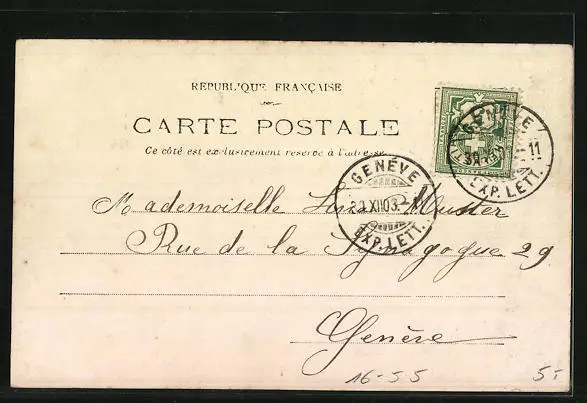 REPUBLIQUE FRANÇAISE
CARTE POSTALE
Ce côté est exclusivement réservé à l'adresse
GENÈVE
EXP. LETT.
GENÉVE
XII 03
EXP. LETT.
Mademoiselle
Rue de la Synagogue 29
Genève
16-55
5-